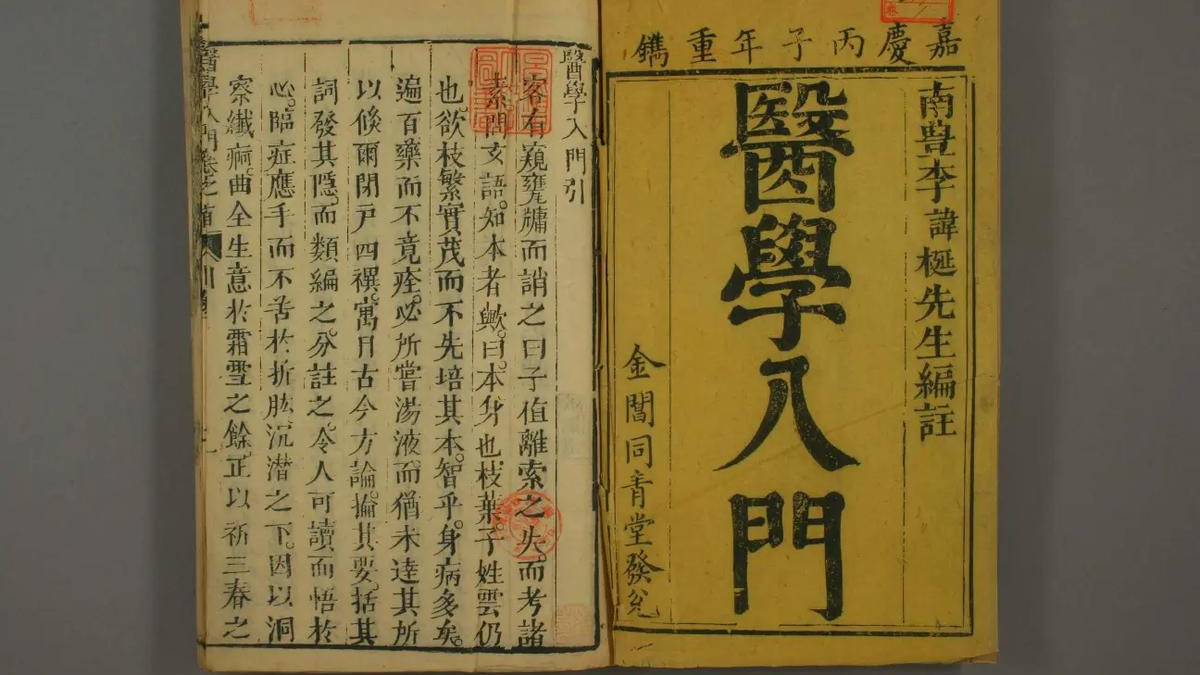 嘉慶丙子年重鐫
南豊李諱梴先生編註
醫學入門
金閶同青堂發兌
醫學入門引
客有窺甕牖而誚之曰子值離索之失。而考諸
素問玄語。知本者歟。曰。本身也枝葉。子姓雲仍
也。欲枝繁實茂而不先培其本。智乎。身病多矣。
遍百藥而不竟痊。必所嘗湯液而猶未達其所
以倏爾閉戶四禩。寓目古今方論。掄其要。括其
詞發其隱。而類編之分註之。令人可讀而悟於
心。臨症應手而不苦於折肱沉潛之下。因以洞
察纎痾。曲全生意於霜雪之餘。正以祈三春之
醫學入門卷之首 引